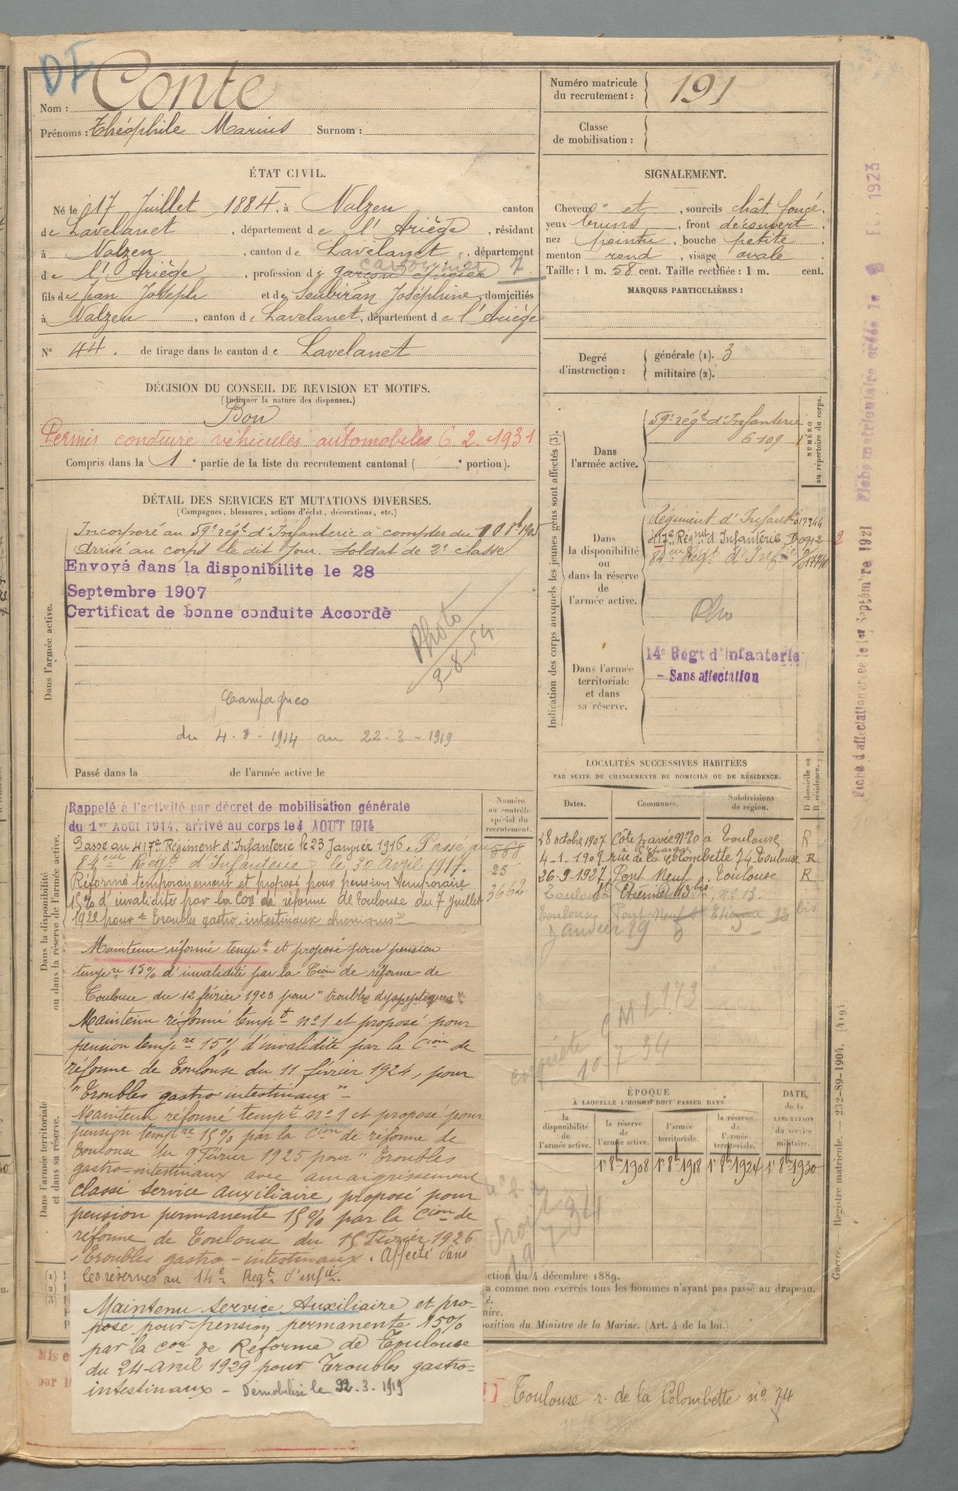 DF
Nom : Conte
Prénoms : Théophile Marius Surnom :
Numéro matricule du recrutement : 191
Classe de mobilisation :
ÉTAT CIVIL.
Né le 17 Juillet 1884, à Nalzen canton
de Lavelanet, département de l'Ariège, résidant
à Nalzen, canton de Lavelanet, département
de l'Ariège, profession de garçon
fils de Jean Joseph et de Soubiran Joséphine, domiciliés
à Nalzen, canton de Lavelanet, département de l'Ariège
N° 44. de tirage dans le canton de Lavelanet
SIGNALEMENT.
Cheveux et, sourcils chât. foncé,
yeux bruns, front découvert,
nez pointu, bouche petite
menton rond, visage ovale
Taille : 1 m. 58 cent. Taille rectifiée : 1 m. cent.
MARQUES PARTICULIÈRES :
Degré d'instruction : générale (1). 3
militaire (2).
DÉCISION DU CONSEIL DE REVISION ET MOTIFS.
(Indiquer la nature des dispenses.)
Bon
Permis conduire véhicules automobiles 6.2.1931
Compris dans la 1e partie de la liste du recrutement cantonal ( e portion).
DÉTAIL DES SERVICES ET MUTATIONS DIVERSES.
(Campagnes, blessures, actions d'éclat, décorations, etc.)
Dans l'armée active.
Incorporé au 59e régt d'Infanterie à compter du 8bre 1905
Arrivé au corps le dit jour. soldat de 2e classe
Envoyé dans la disponibilite le 28
Septembre 1907
Certificat de bonne conduite Accordé
Photo
Campagnes
du 4-8-1914 au 22-3-1919
Passé dans la de l'armée active le
Indication des corps auxquels les jeunes gens sont affectés (3).
NUMÉRO au répertoire du corps.
Dans l'armée active.
59e régt d'Infanterie
5109
Dans la disponibilité ou dans la réserve de l'armée active.
Régiment d'Infant
417e Régmt d'Infanterie
84eme Régt d'Infie
Dans l'armée territoriale et dans sa réserve.
14e Régt d'Infanterie
- Sans affectation
LOCALITÉS SUCCESSIVES HABITÉES
PAR SUITE DE CHANGEMENTS DE DOMICILE OU DE RÉSIDENCE.
Dates. Communes. Subdivisions de région. D domicile ou R résidence.
28 octobre 1907 Toulouse R
4-1-1909 rue de la Colombette 74 Toulouse R
26-9-1927 Pont Neuf Toulouse R
Dans la disponibilité ou dans la réserve de l'armée active.
Numéro au contrôle spécial du recrutement.
568
25
3662
Rappelé à l'activité par décret de mobilisation générale
du 1er Août 1914, arrivé au corps le 4 AOUT 1914
Passé au 417e Régiment d'Infanterie le 23 Janvier 1916. Passé au
84eme Régt d'Infanterie le 30 Avril 1917.
Réformé temporairement et proposé pour pension temporaire
15% d'invalidité par la Con de réforme de Toulouse du 7 juillet
1922 pour "troubles gastro-intestinaux chroniques"
Maintenu réformé tempre et proposé pour pension
tempre 15% d'invalidité par la Cion de réforme de
Toulouse du 12 février 1923 pour "troubles dyspeptiques"
Maintenu réformé tempt n°1 et proposé pour
pension tempre 15% d'invalidité par la Cion de
réforme de Toulouse du 11 février 1924, pour
"troubles gastro intestinaux"
Maintenu réformé tempt n°1 et proposé pour
pension tempre 15% par la Cion de réforme de
Toulouse du 9 Février 1925 pour "troubles
gastro-intestinaux avec amaigrissement
Classé Service Auxiliaire, proposé pour
pension permanente 15% par la Cion de
réforme de Toulouse du 15 Février 1926
"Troubles gastro intestinaux. Affecté dans
les réserves au 14e Regt d'infie.
Maintenu Service Auxiliaire et pro-
posé pour pension permanente 15%
par la Con de Réforme de Toulouse
du 24 avril 1929 pour troubles gastro-
intestinaux - Démobilisé le 22-3-1919
Dans l'armée territoriale et dans sa réserve.
10-7-34
ÉPOQUE
À LAQUELLE L'HOMME DOIT PASSER DANS
la disponibilité de l'armée active.
la réserve de l'armée active.
l'armée territoriale.
la réserve de l'armée territoriale.
DATE de la LIBÉRATION du service militaire.
1er 8bre 1908 1er 8bre 1918 1er 8bre 1924 1er 8bre 1930
ction du 4 décembre 1889.
a comme non exercés tous les hommes n'ayant pas passé au drapeau.
position du Ministre de la Marine. (Art. 4 de la loi.)
Toulouse r. de la Colombette n° 74
Guerre. Registre matricule. 232-89-1904. [419]
Fiche d'affectation créée le 1er Septembre 1921 Fiche matriculaire créée le 8 1923